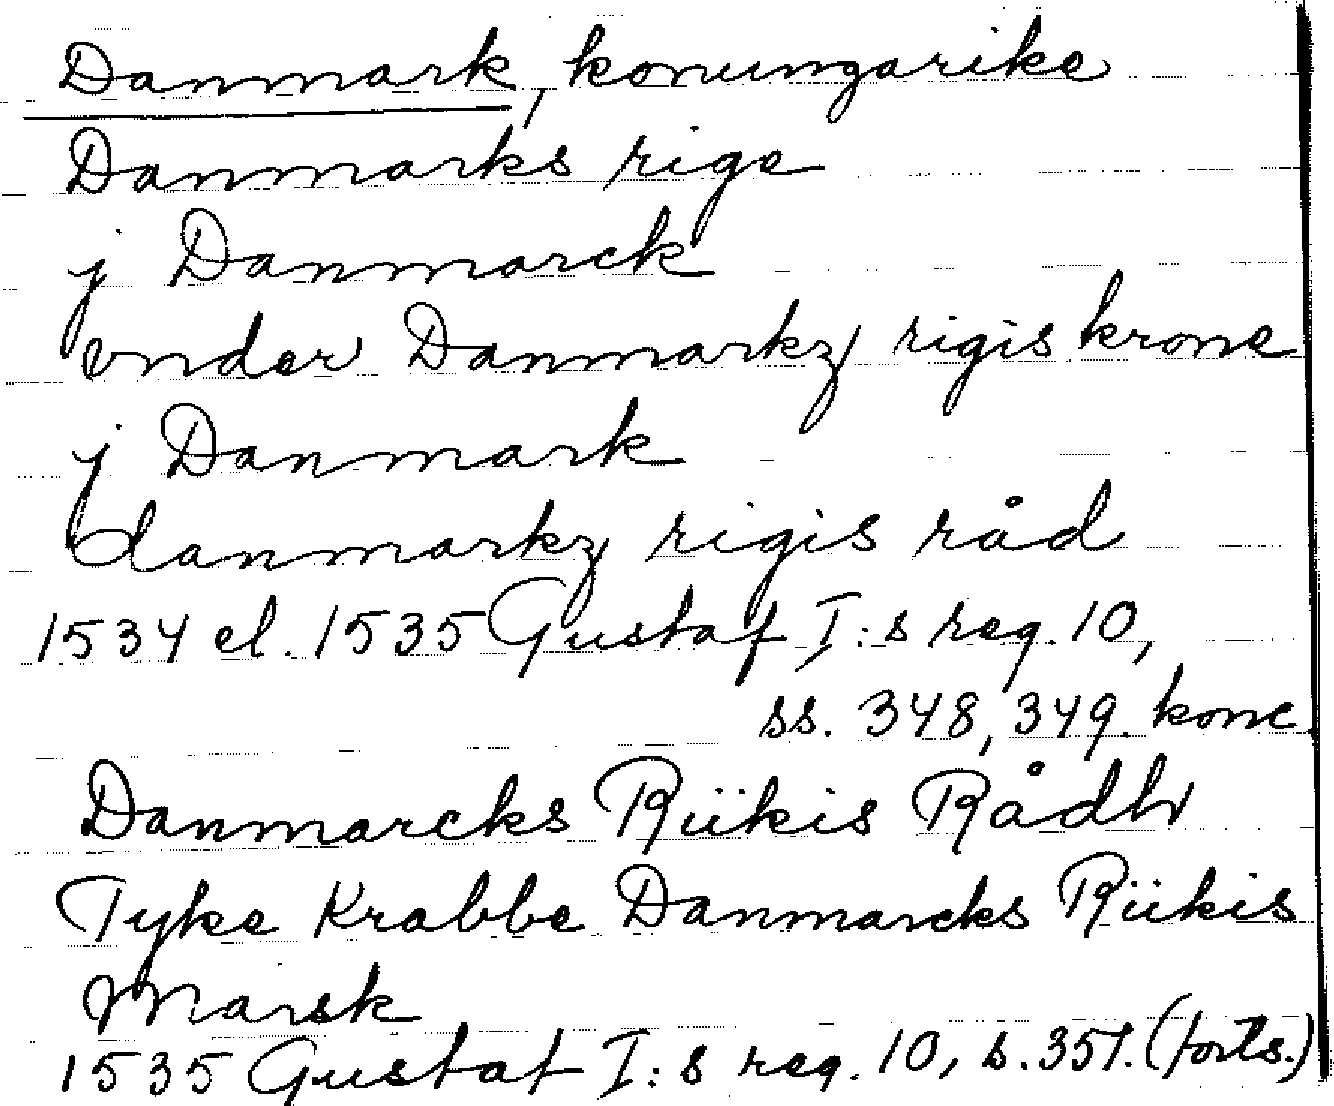 Danmark, konungarike
Danmarks rige
j Danmarck
vnder Danmarkz rigis krone
j Danmark
danmarkz rigis råd
1534 el. 1535 Gustaf I:s reg. 10,
ss. 348, 349. konc.
Danmarcks Riikis Rådh
Tyke Krabbe Danmarcks Riikis
Marsk
1535 Gustaf I:s reg. 10, s. 351. (forts.)